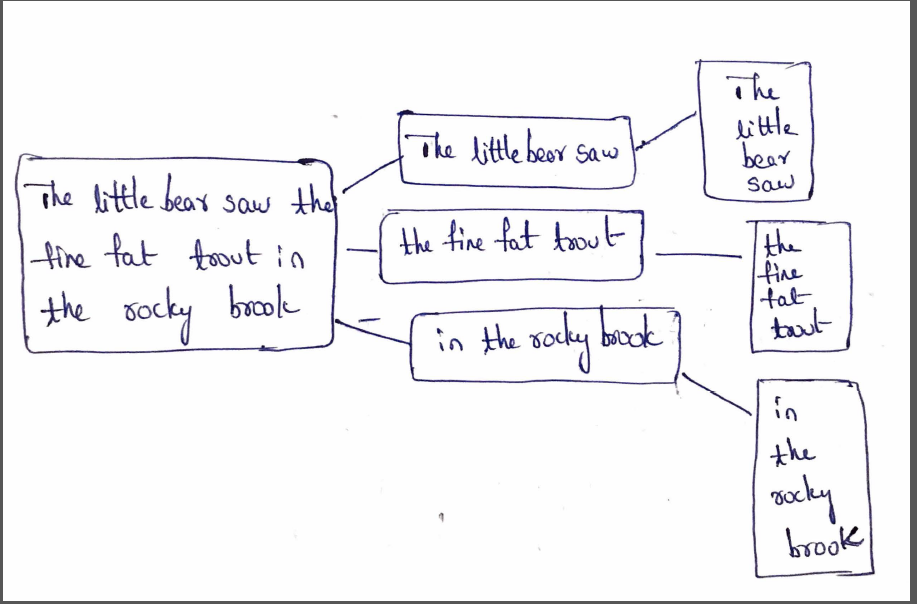 The little bear saw the
fine fat trout in
the rocky brook
The little bear saw
the fine fat trout
in the rocky brook
The
little
bear
saw
the
fine
fat
trout
in
the
rocky
brook